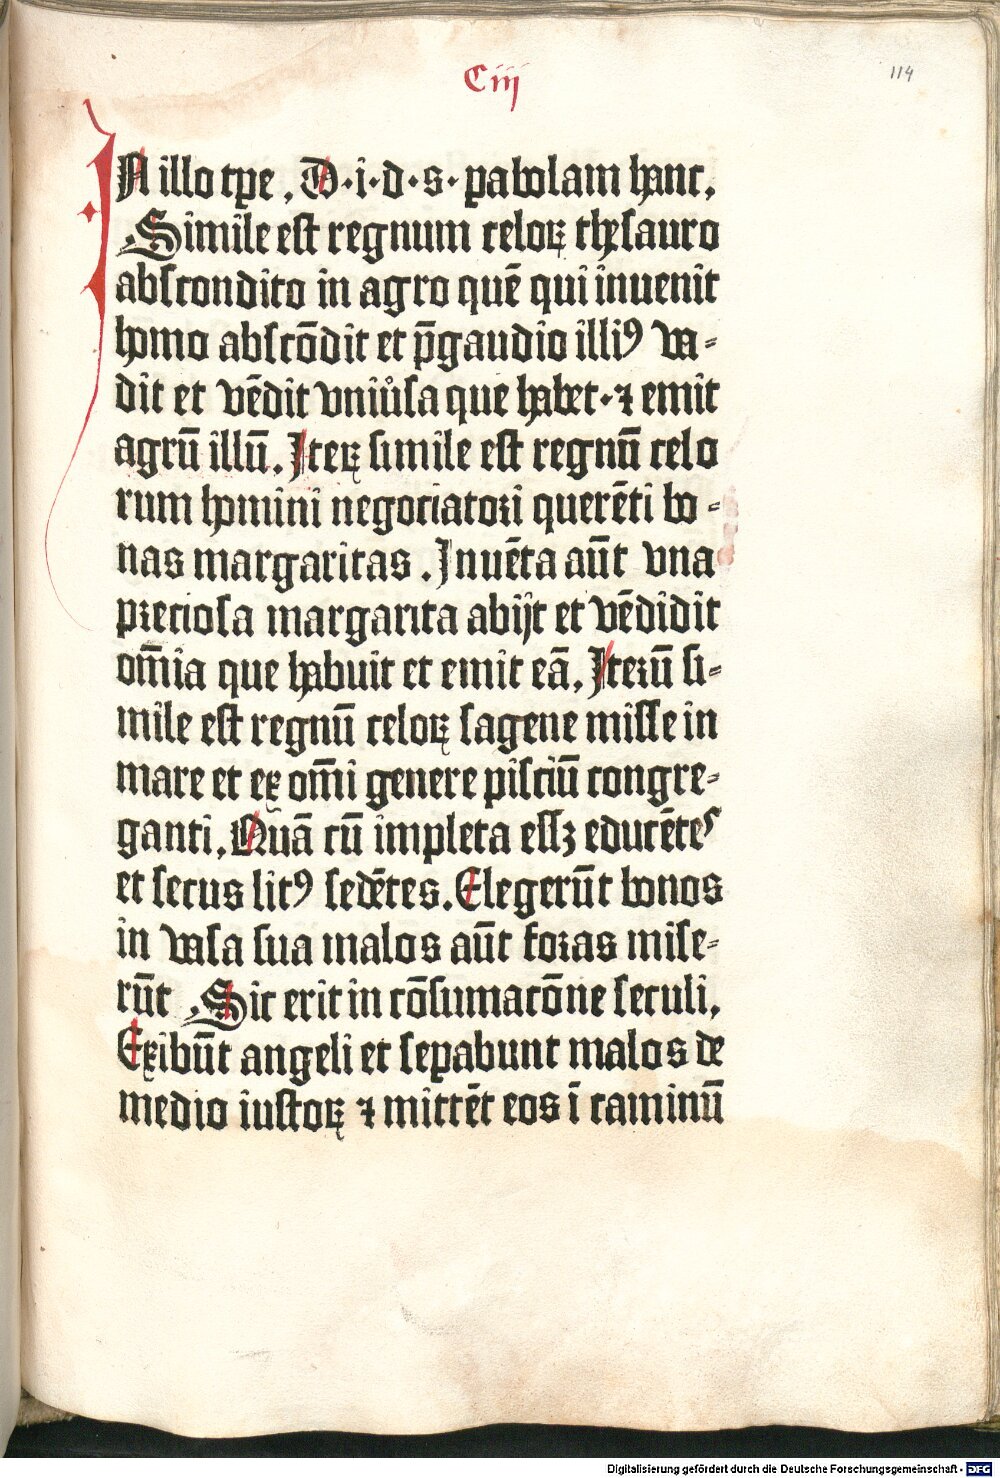 Ciij
114
IN illo tꝑe . D·i·d·s· ꝑabolam hanc.
Simile est regnum celoꝝ thesauro
abscondito in agro quē qui inuenit
homo abscōdit et p̄gaudio illiꝰ va-
dit et vēdit vniu̓sa que habet· ⁊ emit
agrū illū. Iteꝝ simile est regnū celo
rum homini negociatori querēti bo-
nas margaritas. Inuēta aūt vna
preciosa margarita abijt et vēdidit
om̄ia que habuit et emit eā. Iterū si-
mile est regnū celoꝝ sagene misse in
mare et ex om̄i genere pisciū congre-
ganti. Quā cū impleta essꝫ educētes
et secus litꝰ sedētes. Elegerūt bonos
in vasa sua malos aūt foras mise-
rūt Sic erit in cōsumacōne seculi.
Exibūt angeli et seꝑabunt malos de
medio iustoꝝ ⁊ mittēt eos ī caminū
Digitalisierung gefördert durch die Deutsche Forschungsgemeinschaft - DFG